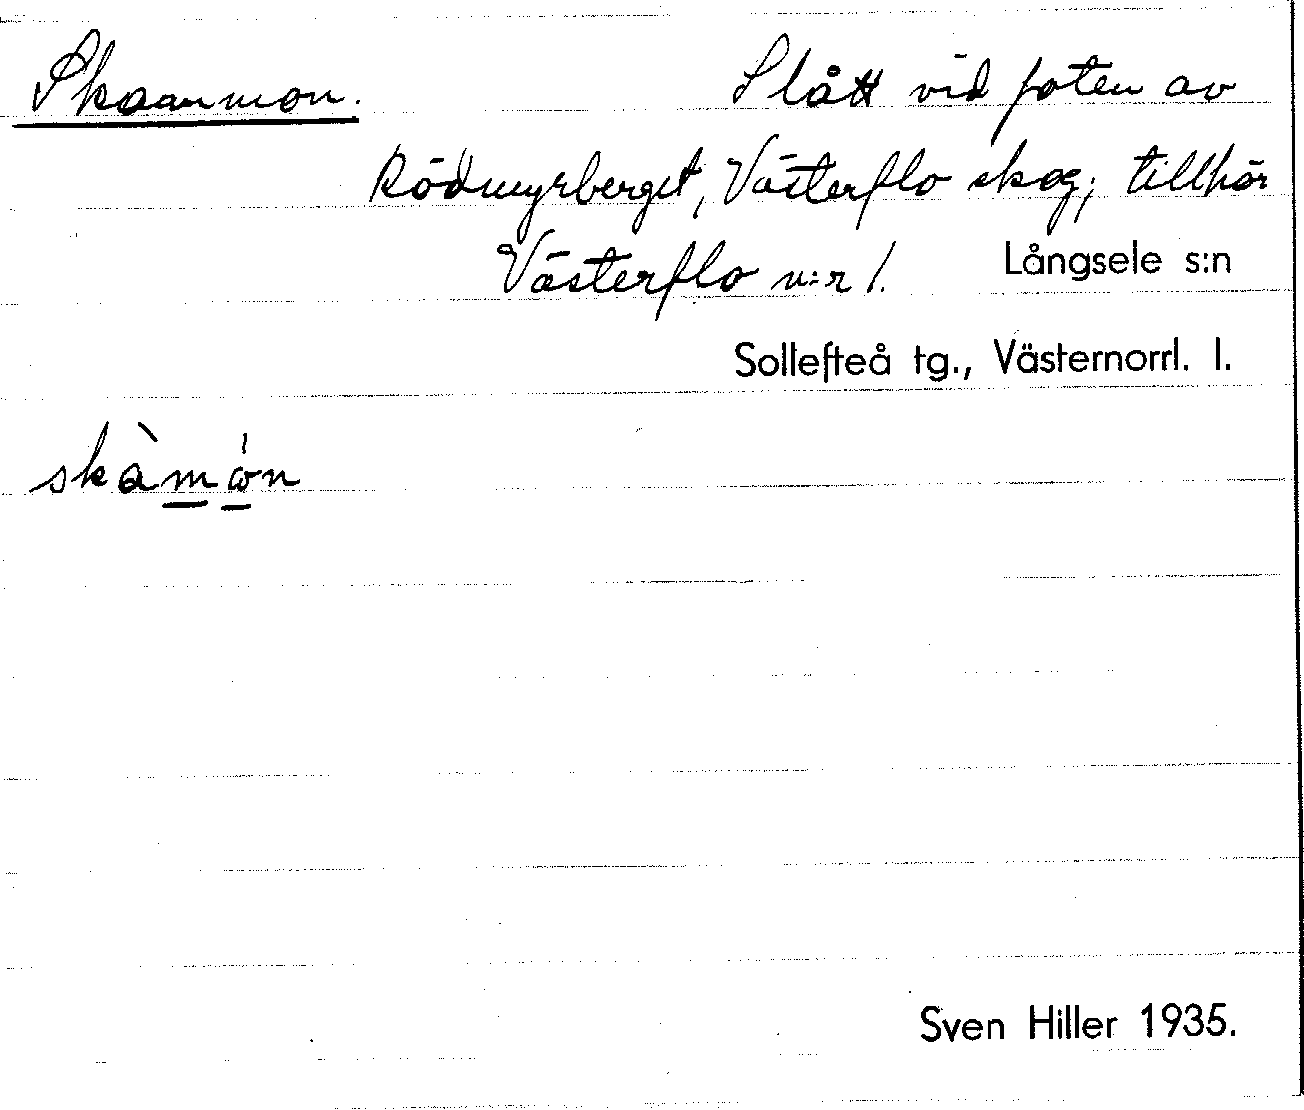 Skaanmon. Slått vid foten av
Rödmyrberget, Västerflo skog; tillhör
Västerflo n:r 1. Långsele s:n
Sollefteå tg., Västernorrl. l.
skàmón
Sven Hiller 1935.